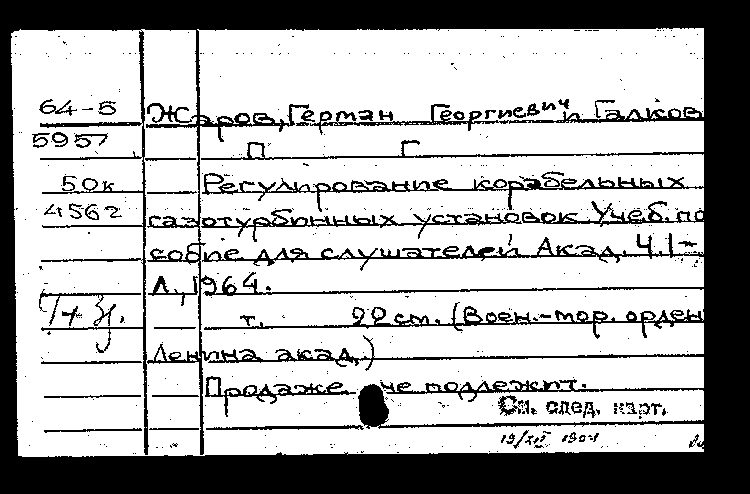 64-5 Жаров, Герман Георгиевич и Галков
5957 П Г
50к Регулирование корабельных
4562 газотурбинных установок Учеб. по
собие для слушателей Акад. Ч.1-
Л., 1964.
т. 22 см. (Воен.-мор. орден
Ленина акад.)
Продаже не подлежит.
См. след. карт.
19/XII